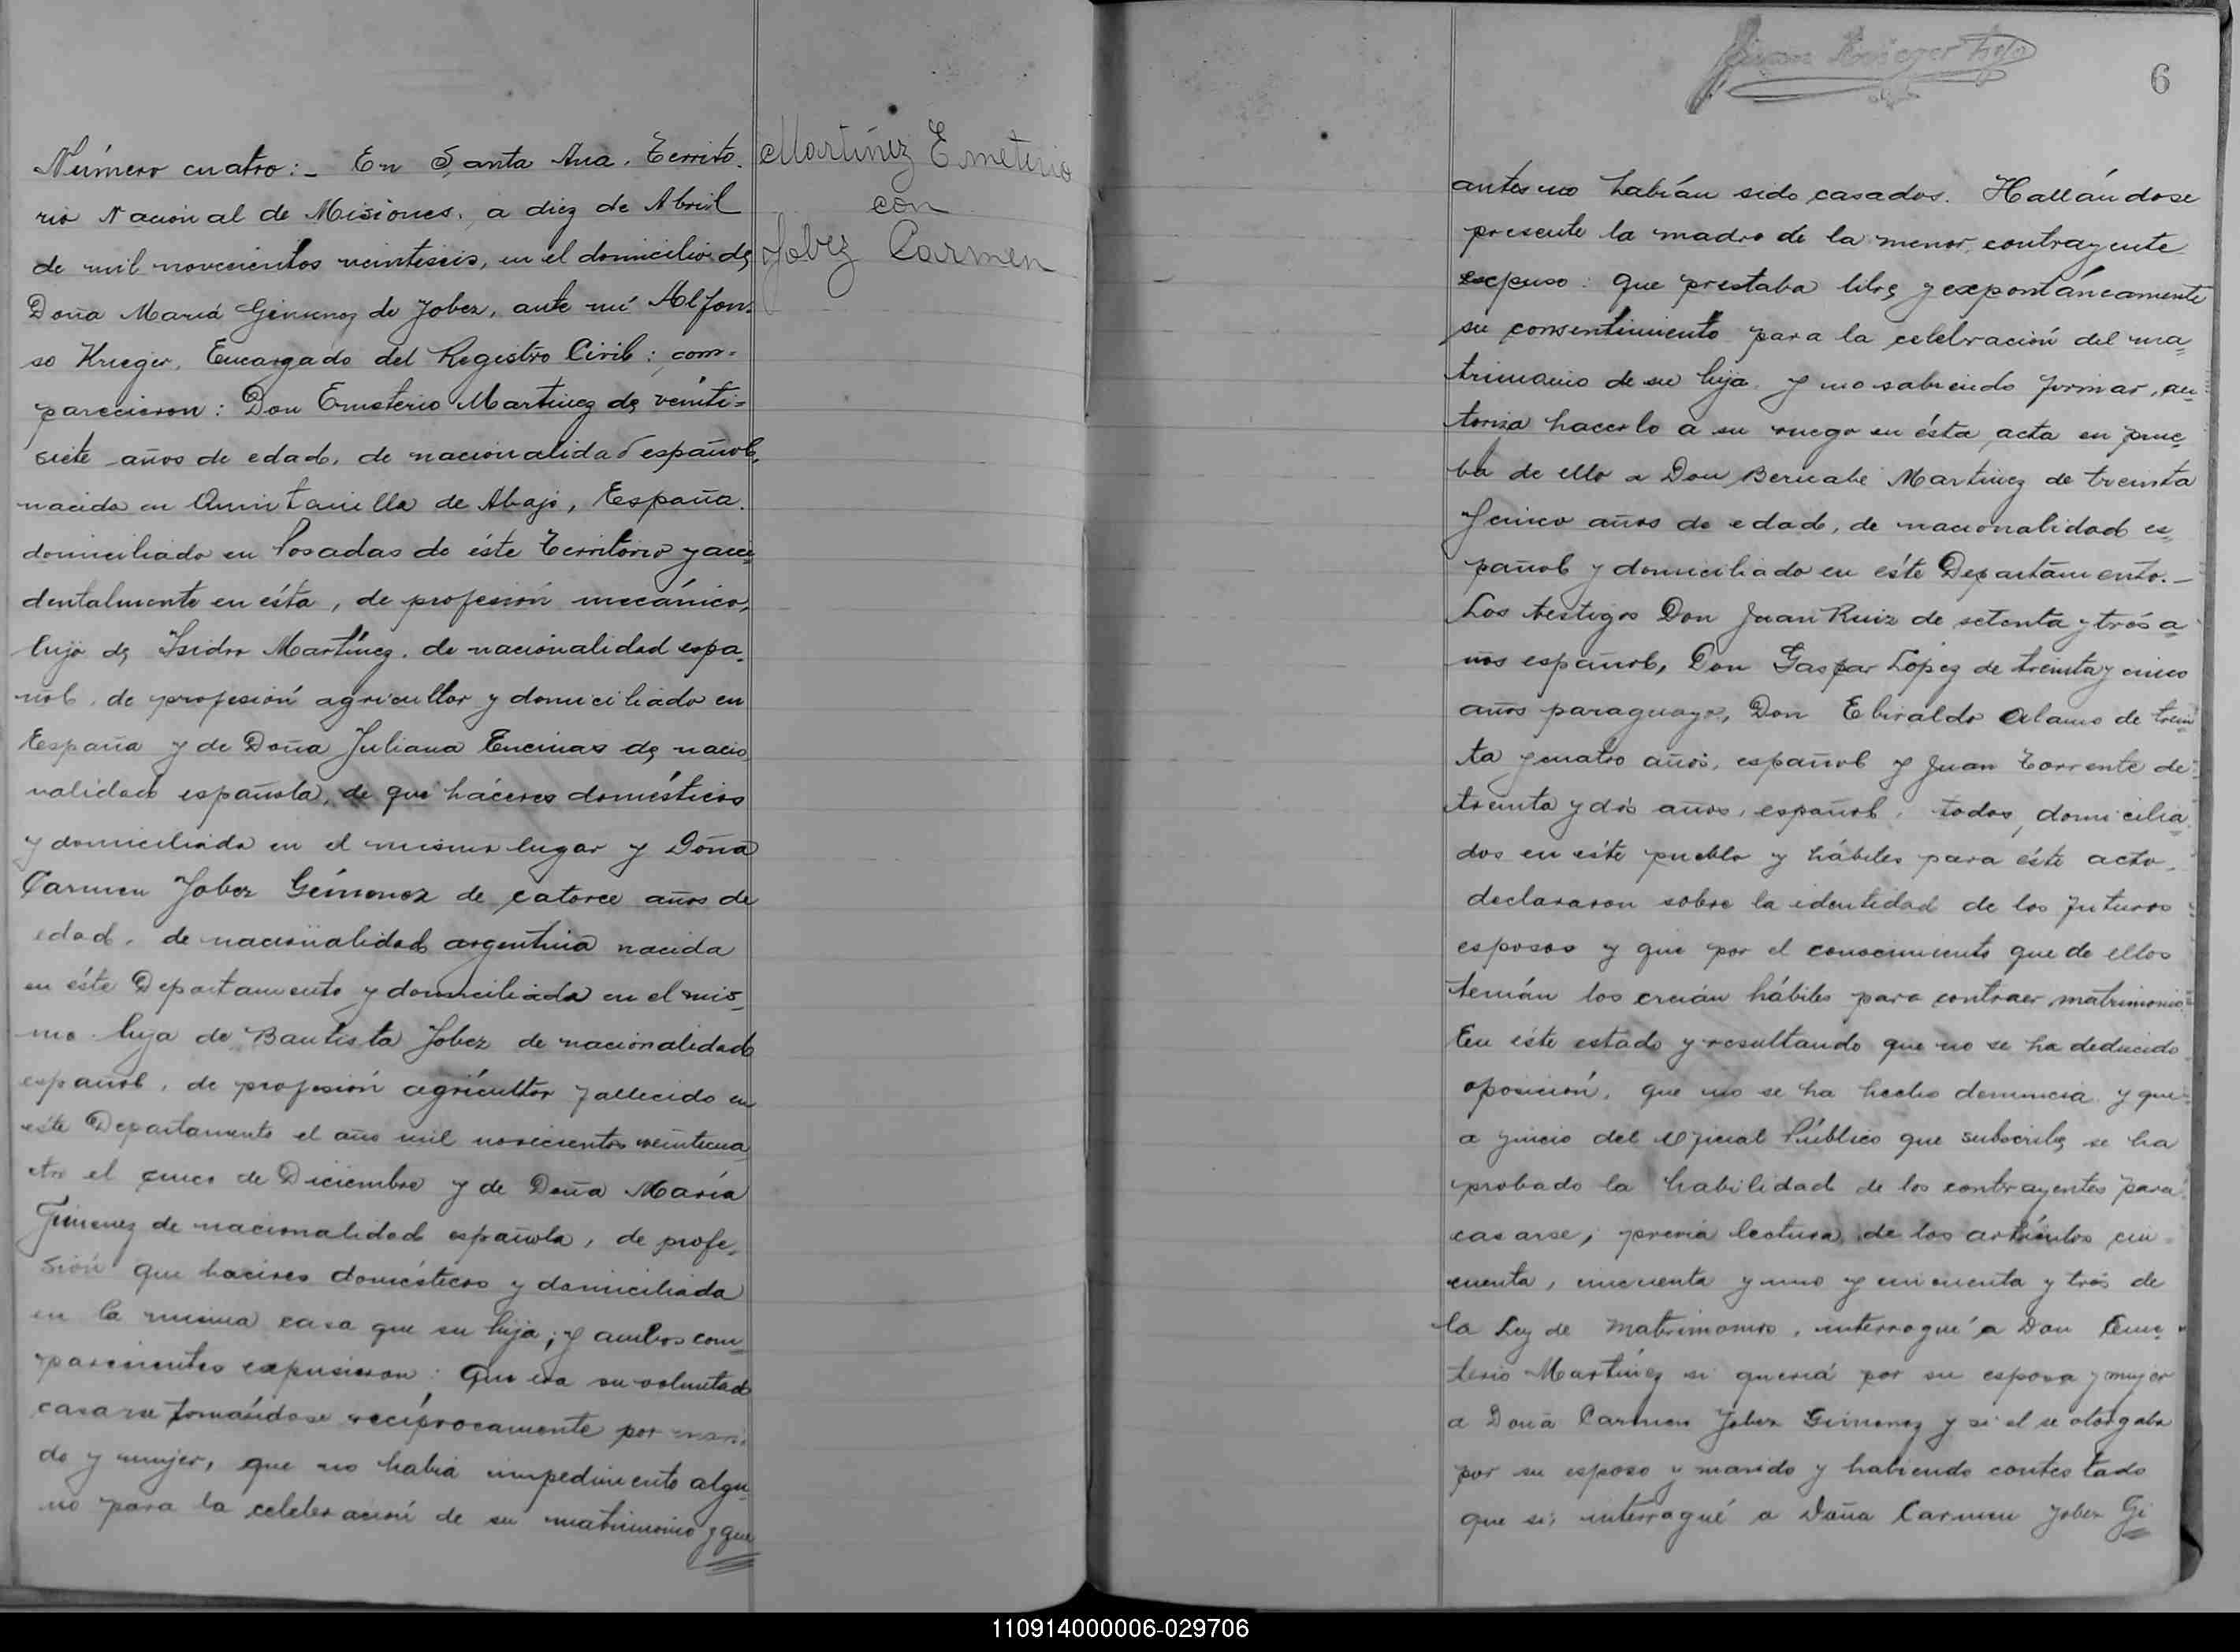 Número cuatro:- En Santa Ana, Territo-
rio Nacional de Misiones, a diez de Abril
de mil novecientos veintiseis, en el domicilio de
Doña María Gimenez de Jobez, ante mí Alfon-
so Krieger, Encargado del Registro Civil; com-
parecieron: Don Emeterio Martinez de veinti-
siete años de edad, de nacionalidad español,
nacido en Quintanilla de Abajo, España.
domiciliado en Posadas de éste Territorio y acci-
dentalmente en ésta, de profesión mecánico,
hijo de Isidro Martínez, de nacionalidad espa-
ñol, de profesión agricultor y domiciliado en
España y de Doña Juliana Encinas de nacio-
nalidad española, de que háceres domésticos
y domiciliada en el mismo lugar y Doña
Carmen Jobez Gimenez de catorce años de
edad, de nacionalidad argentina nacida
en éste Departamento y domiciliada en el mis-
mo hija de Bautista Jobez de nacionalidad
español, de profesión agricultor fallecido en
este Departamento el año mil novecientos veinticua-
tro el cinco de Diciembre y de Doña María
Gimenez de nacionalidad española, de profe-
sión que haceres domésticos y domiciliada
en la misma casa que su hija; y ambos com-
parecientes expusieron: Que era su voluntad
casarse tomándose recíprocamente por mari-
do y mujer, que no había impedimento algu-
no para la celebración de su matrimonio y que
Martínez Emeterio
con
Jobez Carmen
Juan Krieger hijo
6
antes no habían sido casados. Hallándose
presente la madre de la menor contrayente
expuso: que prestaba libre y expontáneamente
su consentimiento para la celebración del ma-
trimonio de su hija y no sabiendo firmar, au-
toriza hacerlo a su ruego en ésta acta en prue-
ba de ello a Don Bernabé Martinez de treinta
y cinco años de edad, de nacionalidad es-
pañol y domiciliado en éste Departamento.-
Los testigos Don Juan Ruiz de setenta y trés a-
ños español, Don Gaspar López de treinta y cinco
años paraguayo, Don Ebiraldo Alamo de trein-
ta y cuatro años, español y Juan Torrente de
treinta y dós años, español, todos domicilia-
dos en éste pueblo y hábiles para éste acto,
declararon sobre la identidad de los futuros
esposos y que por el conocimiento que de ellos
tenían los creían hábiles para contraer matrimonio.
En éste estado y resultando que no se ha deducido
oposición, que no se ha hecho denuncia y que
a juicio del Oficial Público que subscribe se ha
probado la habilidad de los contrayentes para
casarse; previa lectura de los artículos cin-
cuenta, cincuenta y uno y cincuenta y trés de
la Ley de Matrimonio, interrogué a Don Eme-
terio Martínez si quería por su esposa y mujer
a Doña Carmen Jobez Gimenez y si el se otorgaba
por su esposo y marido y habiendo contestado
que si, interrogué a Doña Carmen Jobez Gi
110914000006-029706